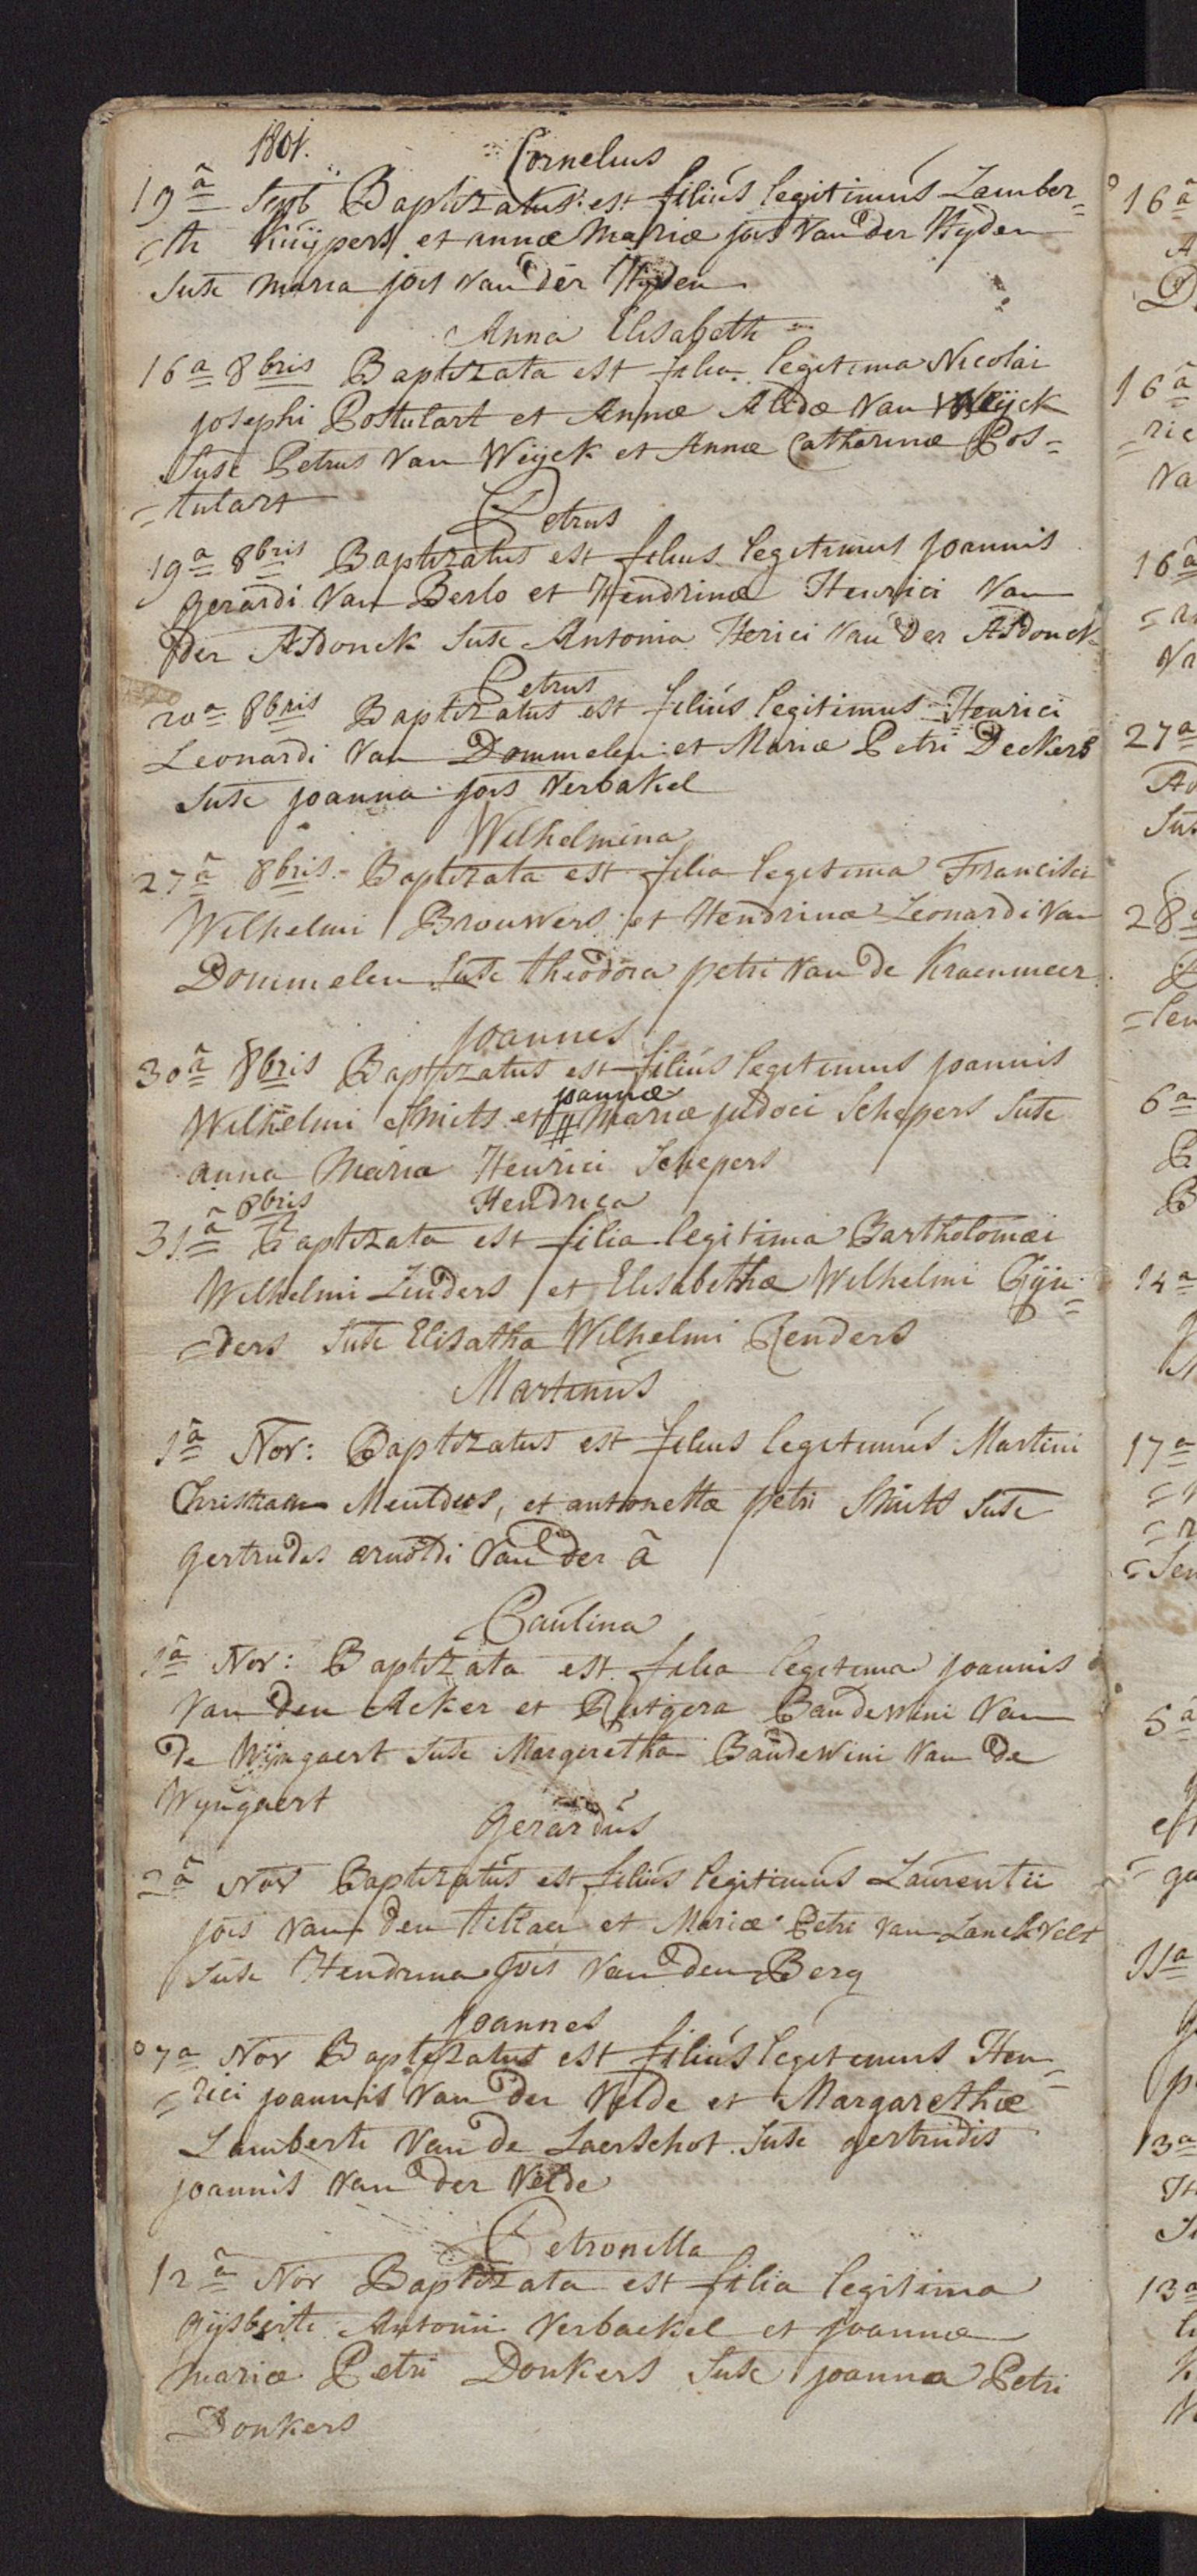 1801.
Cornelius
19ā Septb Baptizatus est filius legitimus Lamber=
=ti Kuijpers et annæ Mariæ jois Van der Hijden
Suse maria jois van der Hijden
Anna Elisabeth
16a 8bris Baptizata est filia legitima Nicolai
josephi Postulart et Annæ Alidæ Van Wijck
Suse Petrus Van Wijck et Annæ Catharinæ Pos=
=tulart
Petrus
19a 8bris Baptizatus est filius legitimus joannis
gerardi Van Berlo et Hendrinæ Henrici Van
Der Asdonck Suse Antonia Herici Van Der Asdonck
Petrus
20a 8bris Baptizatus est filius legitimus Henrici
Leonardi Van Dommelen et Mariæ Petri Deckers
Suse joanna jois Verbakel
Wilhelmina
27ā 8bris Baptizata est filia legitima Francisci
Wilhelmi Brouwers et Hendrinæ Leonardi Van
Dommelen Suse theodora petri Van de Kraenmeer
joannes
30ā 8bris Baptizatus est filius legitimus joannis
joannæ
Wilhelmi Smits et # Mariæ judoci Schepers Suse
anna Maria Henrici Schepers
8bris Hendrica
31ā Baptizata est filia legitima Bartholomæi
Wilhelmi Linders et Elisabethæ Wilhelmi Rijn=
=ders Suse Elisatha Wilhelmi Renders
Martinus
1ā Nov: Baptizatus est filius legitimus Martini
Christiaan, et antonettæ petri Smits Suse
gertrudis arnoldi Van der ā
Paulina
1ā Nov: Baptizata est filia legitima joannis
Van den Acker et Rutgera Baudewini Van
de Wijngaert Suse Margeretha Baudewini Van de
Wyngaert
Gerardus
2ā Nov Baptizatus est filius legitimus Laurentii
jois Van den tillaer et Mariæ Petri Van Lanckvelt
Suse Hendrina jois Van den Berg
joannes
7a Nov Baptizatus est filius legitimus Hen=
=rici joannis Van der Velde et Margarethæ
Lamberti Van de Laerschot Suse gertrudis
joannis Van der Velde
Petronilla
12ā Nov Baptizata est filia legitima
gijsberti Antonii Verbackel et joannæ
mariæ Petri Donkers Suse joanna Petri
Donkers